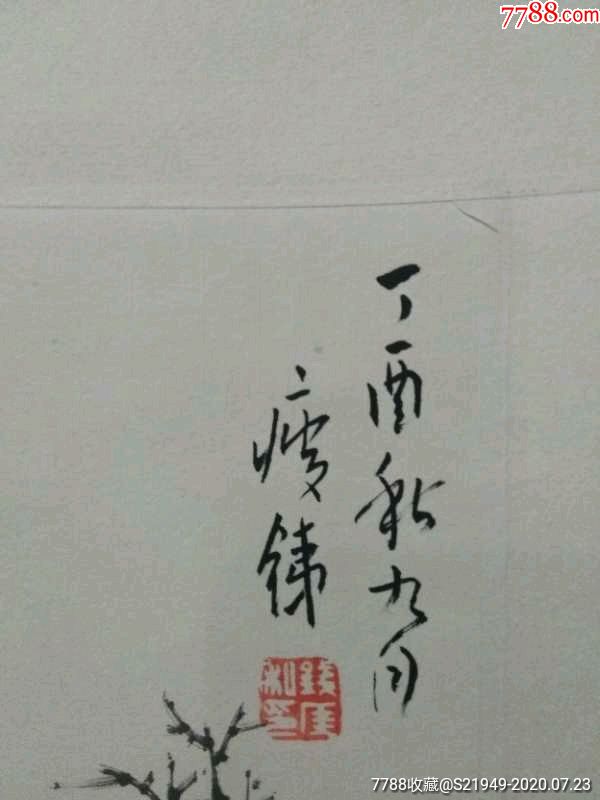 7788.com
丁酉秋九月
瘦铁
钱厓私印
7788收藏@S21949-2020.07.23